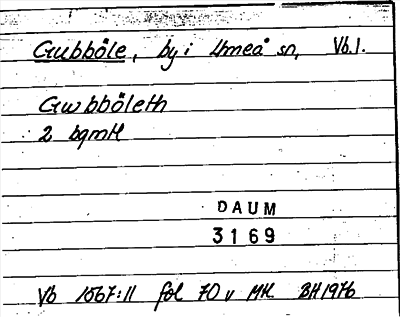 Gubböle, by i Umeå sn, Vb.l.
Gwbböleth
2 bqmH
DAUM
3169
Vb 1567:11 fol 70 v MH BH1976